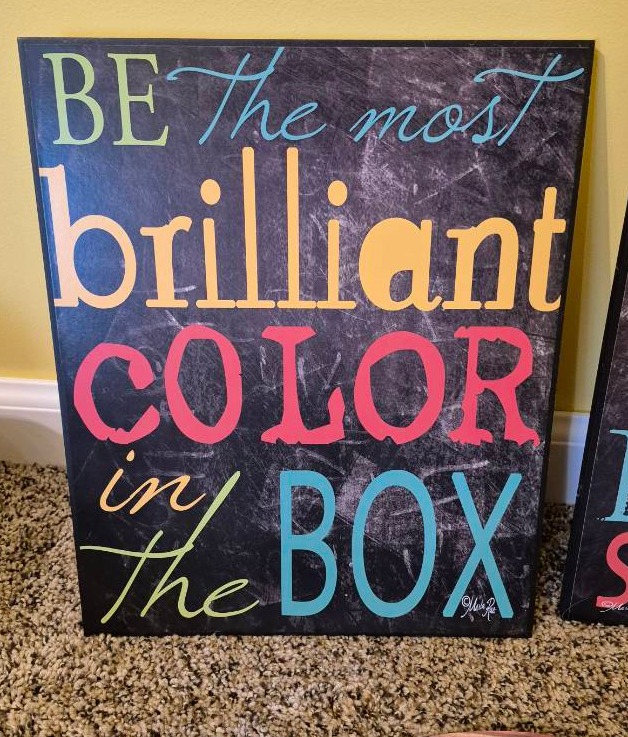 BE the most
brilliant
COLOR
in
the BOX
©Marla Rae